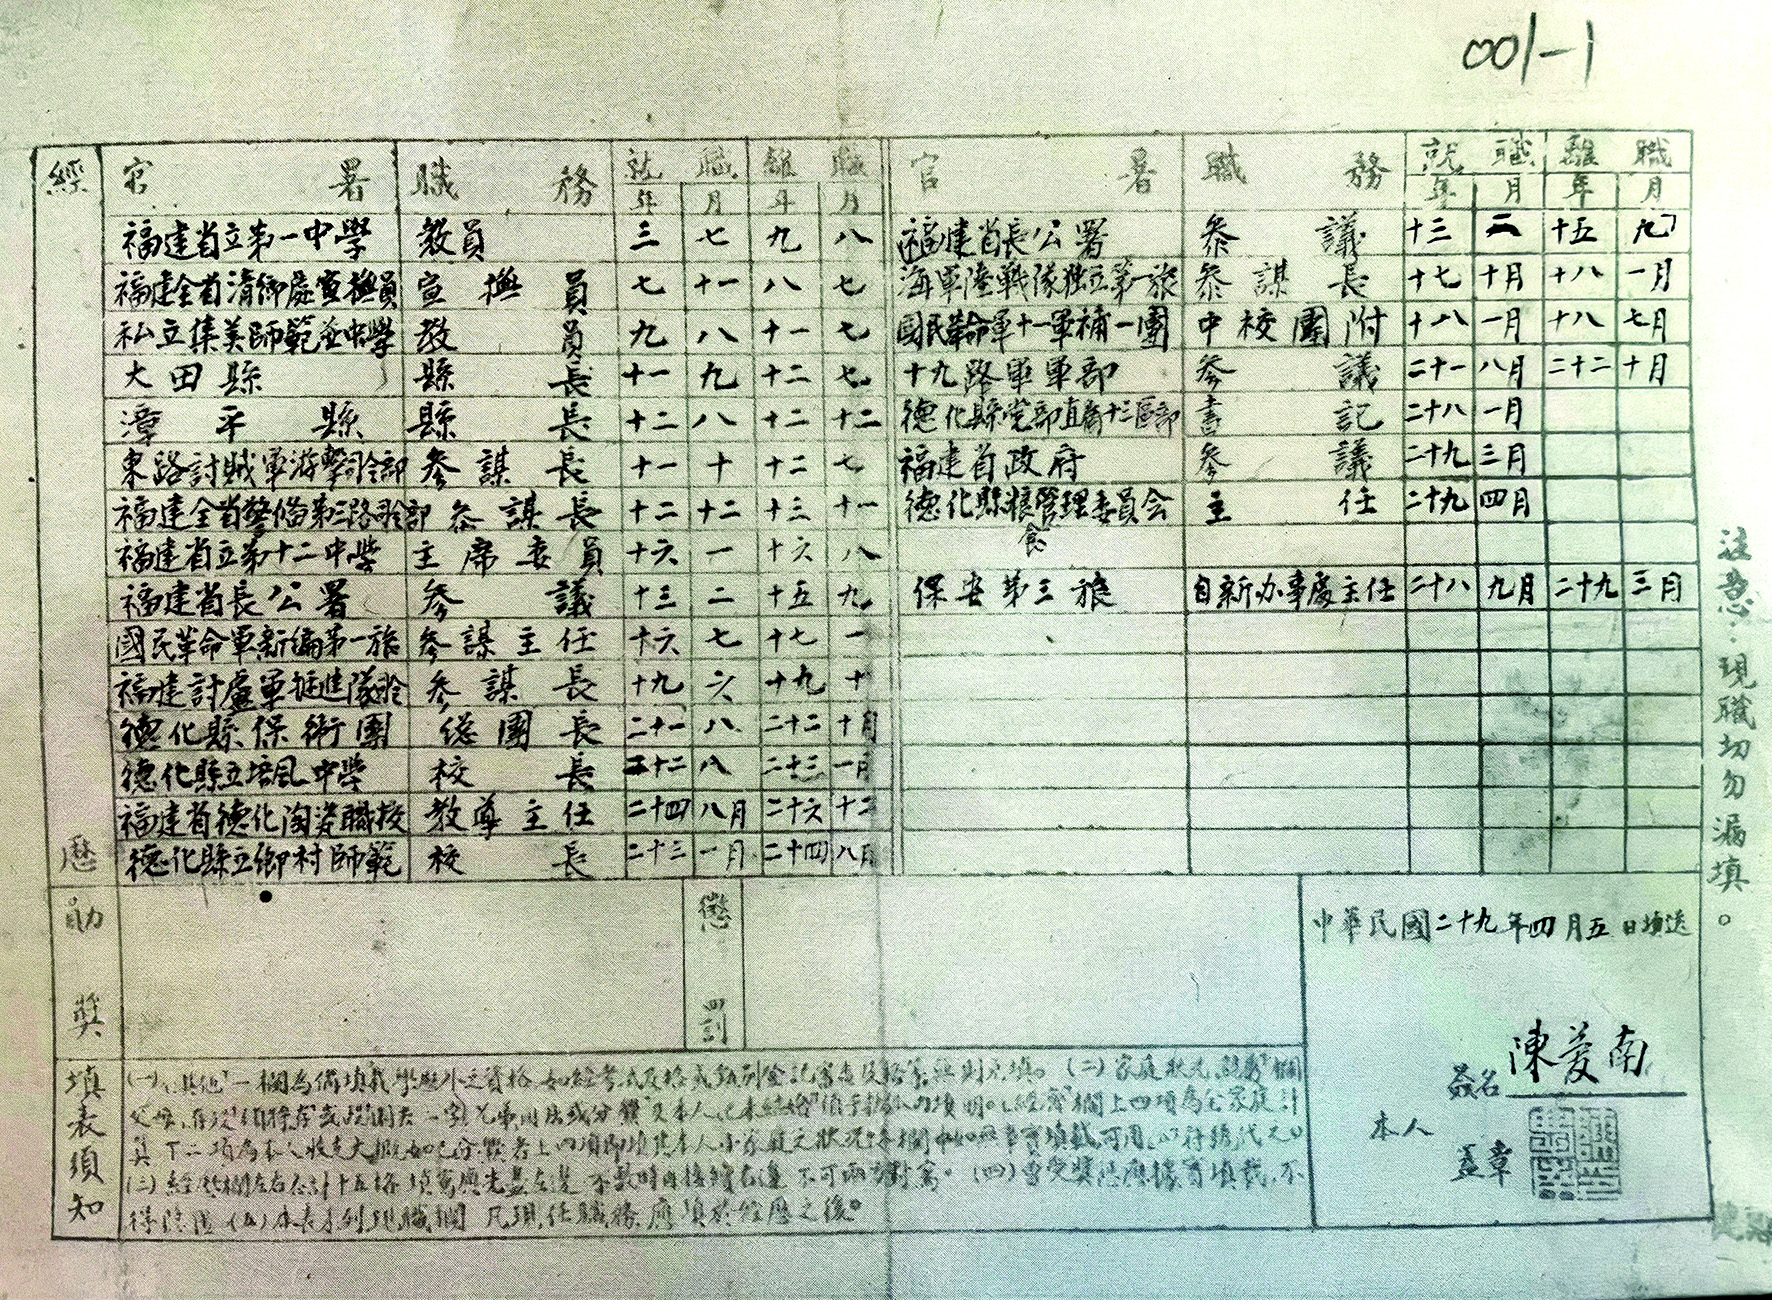 001-1
經歷
官署 職務 就職 離職 官署 職務 就職 離職
年 月 年 月 年 月 年 月
福建省立第一中學 教員 三 七 九 八
福建全省清鄉處宣撫員 宣撫員 七 十一 八 七
私立集美師範並中學 教員 九 八 十一 七
大田縣 縣長 十一 九 十二 七
漳平縣 縣長 十二 八 十二 十二
東路討賊軍游擊司令部 參謀長 十一 十 十二 七
福建全省警備第三路司令部 參謀長 十二 十二 十三 十一
福建省立第十二中學 主席委員 十六 一 十六 八
福建省長公署 參議 十三 二 十五 九
國民革命軍新編第一旅 參謀主任 十六 七 十七 一
福建討盧軍挺進隊司令 參謀長 十九 六 十九 十
德化縣保衛團 總團長 二十一 八 二十二 十月
德化縣立培風中學 校長 二十二 八 二十三 一月
福建省德化陶瓷職校 教導主任 二十四 八月 二十六 十二
德化縣立鄉村師範 校長 二十三 一月 二十四 八月
福建省長公署 參議 十三 二 十五 九
海軍陸戰隊独立第一旅 參謀長 十七 十月 十八 一月
國民革命軍十一軍補一團 中校團附 十八 一月 十八 七月
十九路軍軍部 參議 二十一 八月 二十二 十月
德化縣党部直屬十三區部 書記 二十八 一月
福建省政府 參議 二十九 三月
德化縣粮食管理委員会 主任 二十九 四月
保安第三旅 自新办事處主任 二十八 九月 二十九 三月
注意：現職切勿漏填。
勛獎
懲罰
中華民國二十九年四月五日填送
本人
簽名 陳菱南
蓋章
填表須知
(一)「其他」一欄為備填載學歷外之資格 (二)家庭狀況
欄上四項為全家庭計
(三)經歷欄左右合計十五格 填寫應先盡左邊 不敷時再接續右邊 不可兩方對寫。(四)曾受獎懲應據實填載，不
得隱匿 (五)本表未列現職欄 凡現任職務 應填於經歷之後。